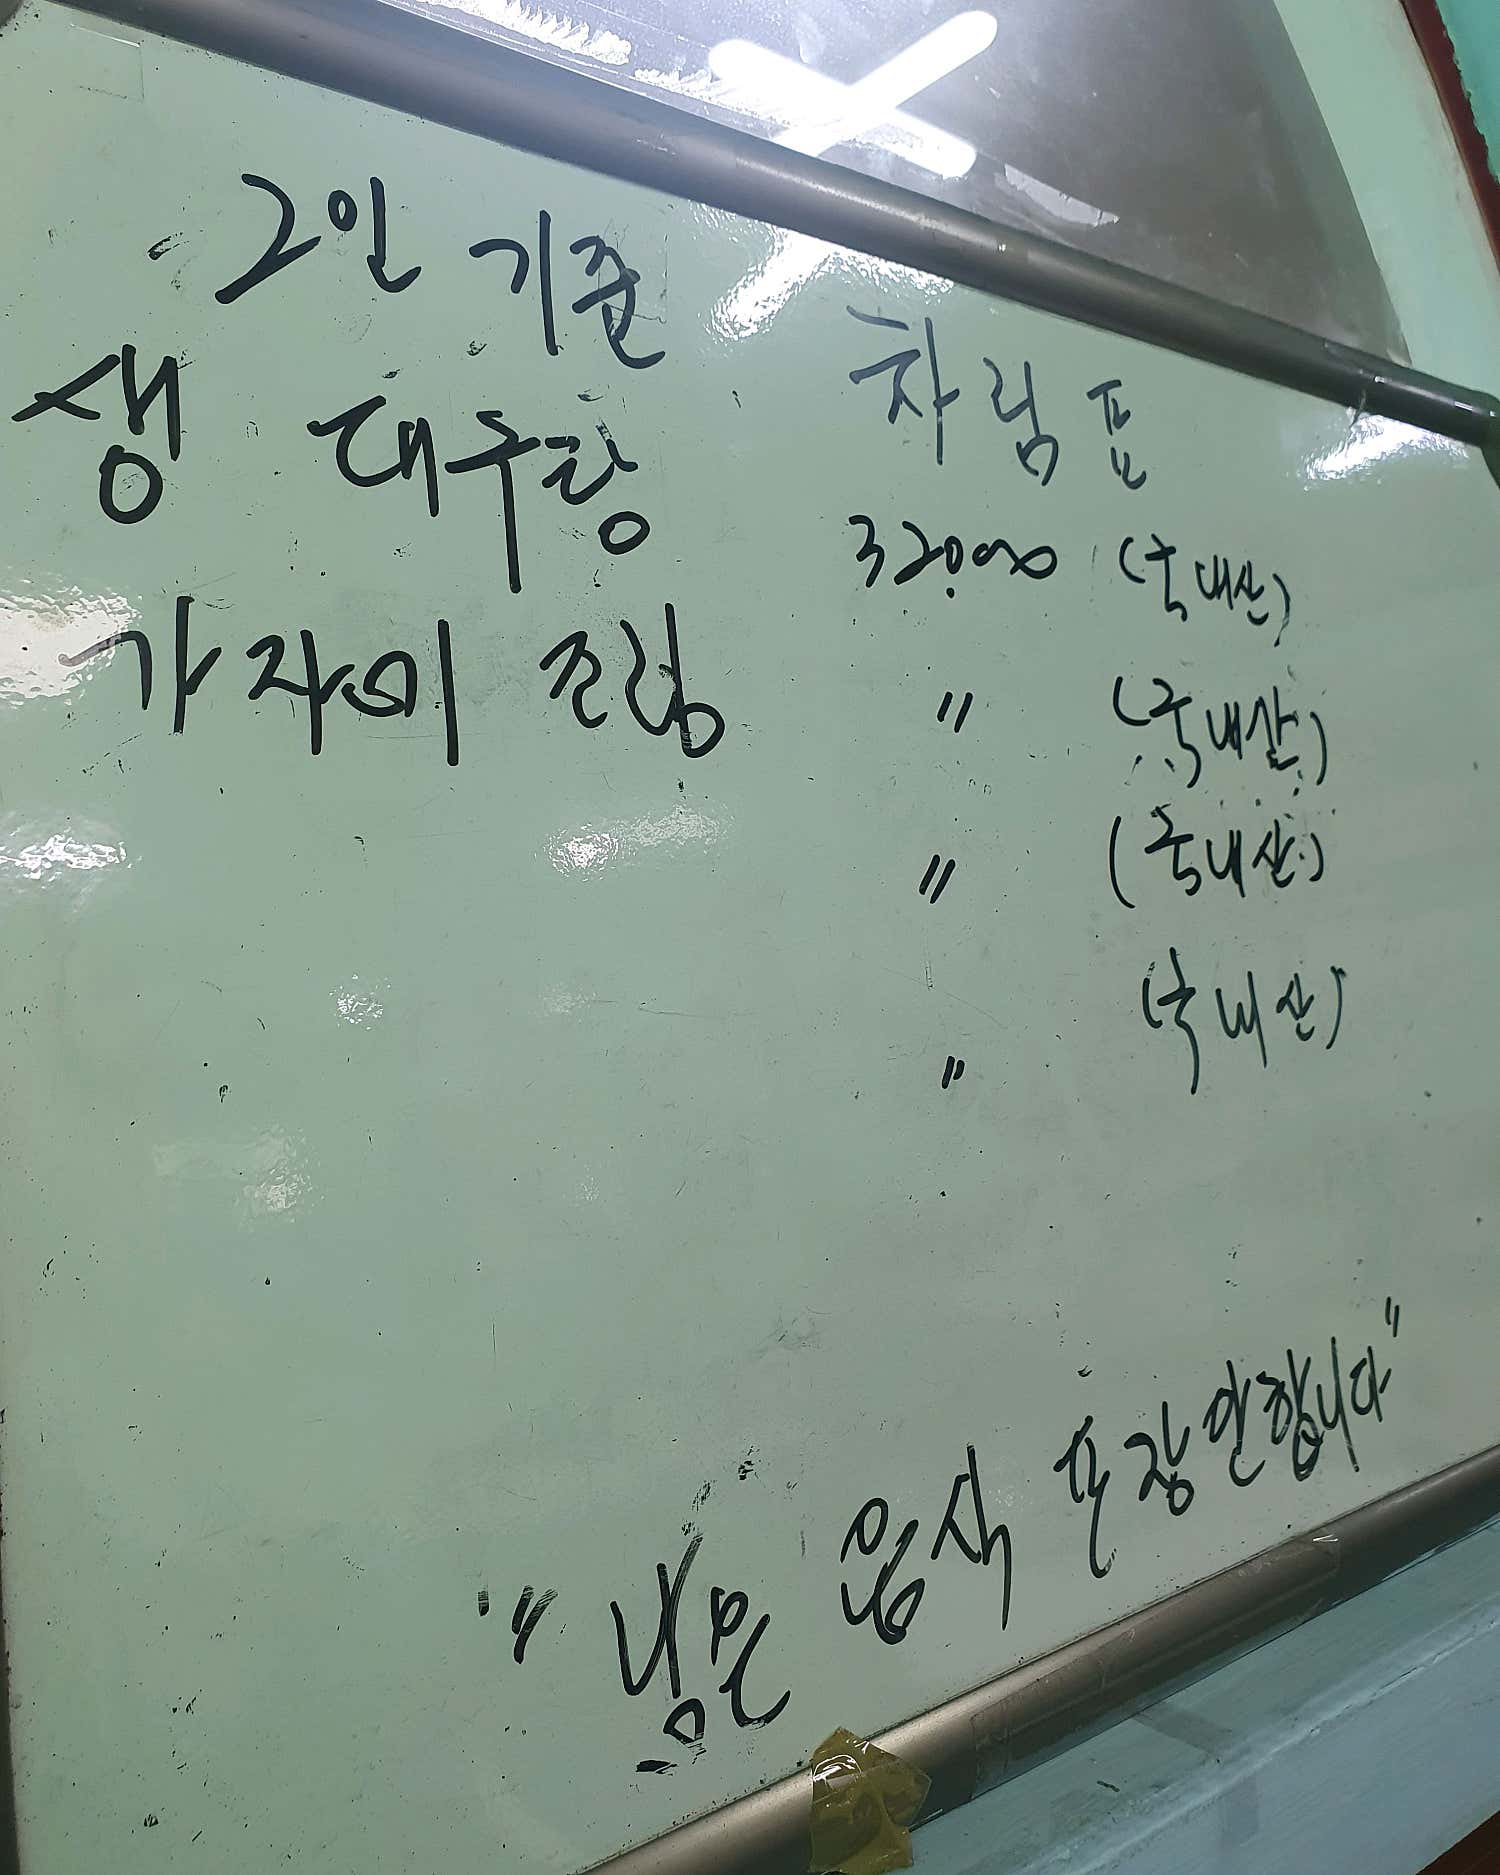 2인 기준
차림표
생 대구탕 32000 (국내산)
가자미 조림 〃 (국내산)
〃 (국내산)
〃 (국내산)
"남은 음식 포장 안합니다"